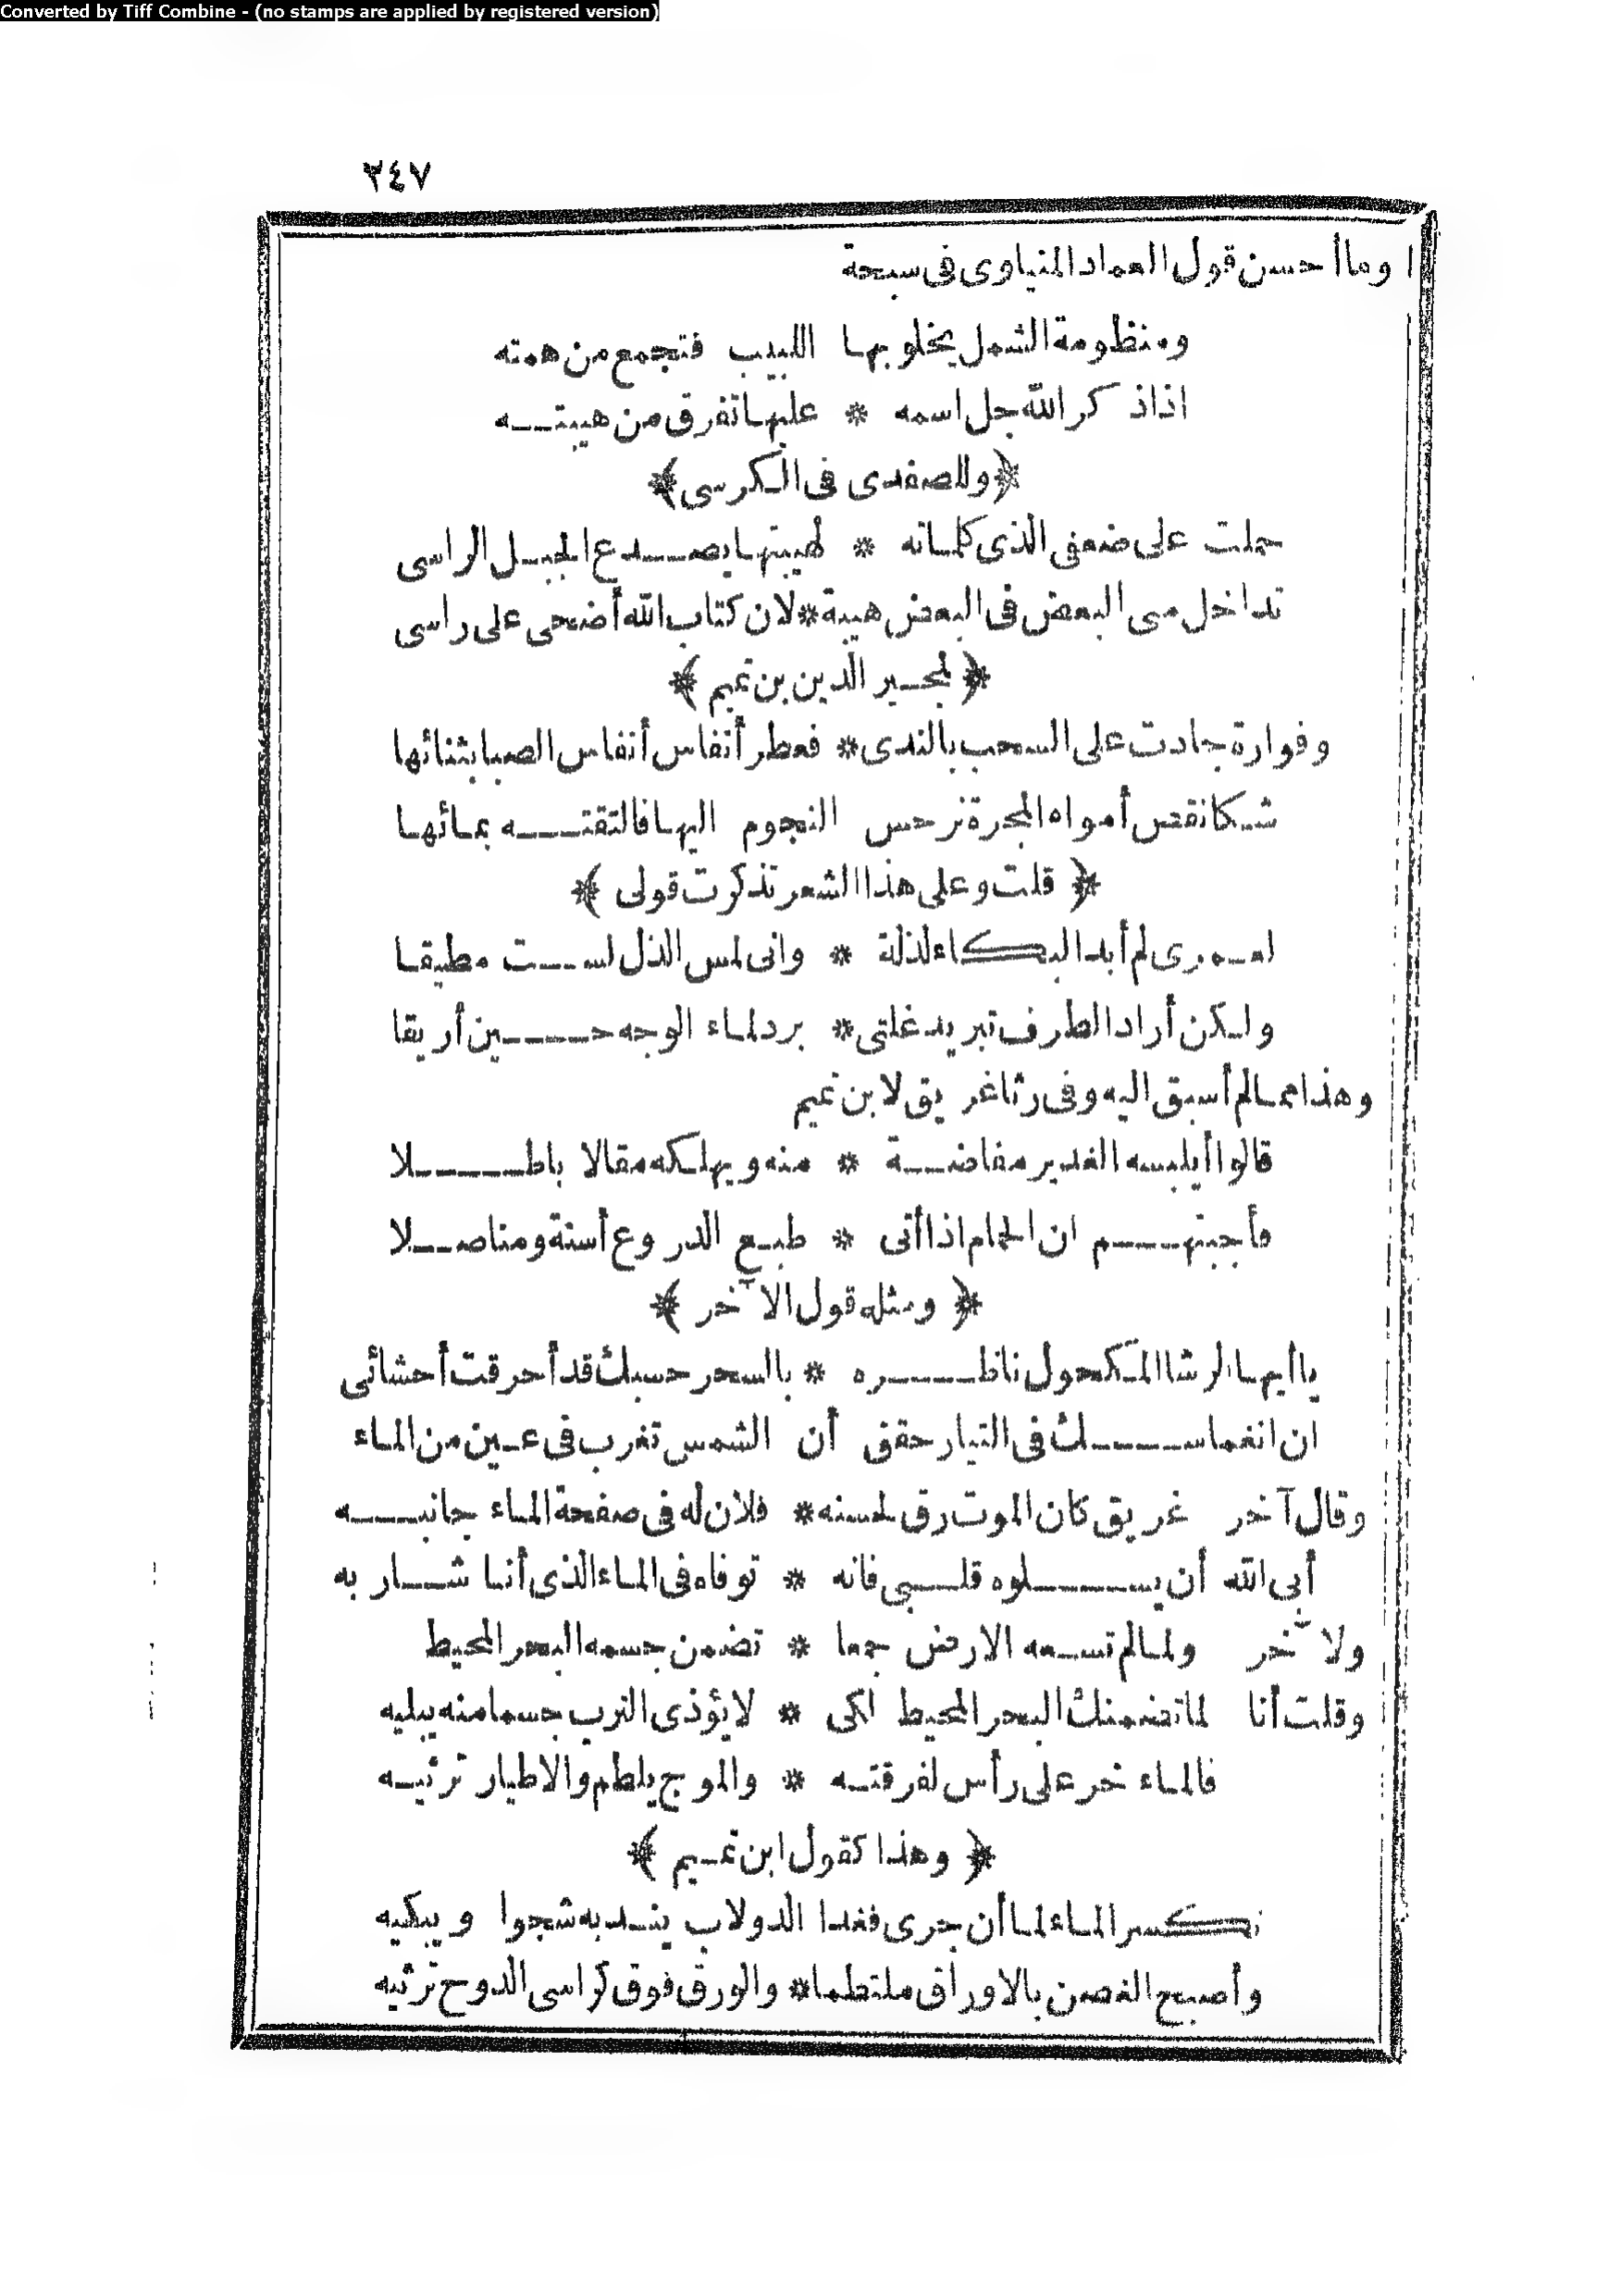 Converted by Tiff Combine - (no stamps are applied by registered version)
٢٤٧
وما أحسن قول العماد المنياوى فى سبحة
ومنظومة الشمل يخلو بها اللبيب فتجمع من همته
اذا ذكر الله جل اسمه * عليها تفرق من هيبته
﴿وللصفدى فى الكرسى﴾
حملت على ضعفى الذى كلماته * لهيبتها يصدع الجبل الراسى
تداخل منى البعض فى البعض هيبة * لان كتاب الله أضحى على راسى
﴿لمجير الدين بن تميم﴾
وفوارة جادت على السحب بالندى * فعطر أنفاس أنفاس الصبا بثنائها
شكا نقص أمواه المجرة نرجس النجوم اليها فالتقته بمائها
﴿قلت وعلى هذا الشعر تذكرت قولى﴾
لعمرى لم أبد البكاء لذلة * وانى لمس الذل لست مطيقا
ولكن أراد الطرف تبريد غلتى * برد لماء الوجه حين أريقا
وهذا مما لم أسبق اليه وفى رثا غريق لابن تميم
قالوا أيلبسه الغدير مفاضة * منه ويهلكه مقالا باطلا
فأجبتهم ان الحمام اذا أتى * طبع الدروع أسنة ومناصلا
﴿ومثله قول الآخر﴾
يا أيها الرشا المكحول ناظره * بالسحر حسبك قد أحرقت أحشائى
ان انغماسك فى التيار حقق أن الشمس تغرب فى عين من الماء
وقال آخر غريق كان الموت رق لحسنه * فلان له فى صفحة الماء جانبه
أبى الله أن يسلوه قلبى فانه * توفاه فى الماء الذى أنا شاربه
ولآخر ولما لم تسعه الارض جمعا * تضمن جسمه البحر المحيط
وقلت أنا لما تضمنك البحر المحيط لكى * لا يؤذى الترب جسما منه يبليه
فالماء خر على رأس لفرقته * والموج يلطم والاطيار ترثيه
﴿وهذا كقول ابن تميم﴾
تكسر الماء لما أن جرى فغدا الدولاب يندبه شجوا ويبكيه
وأصبح الغصن بالاوراق ملتطما * والورق فوق كراسى الدوح ترثيه